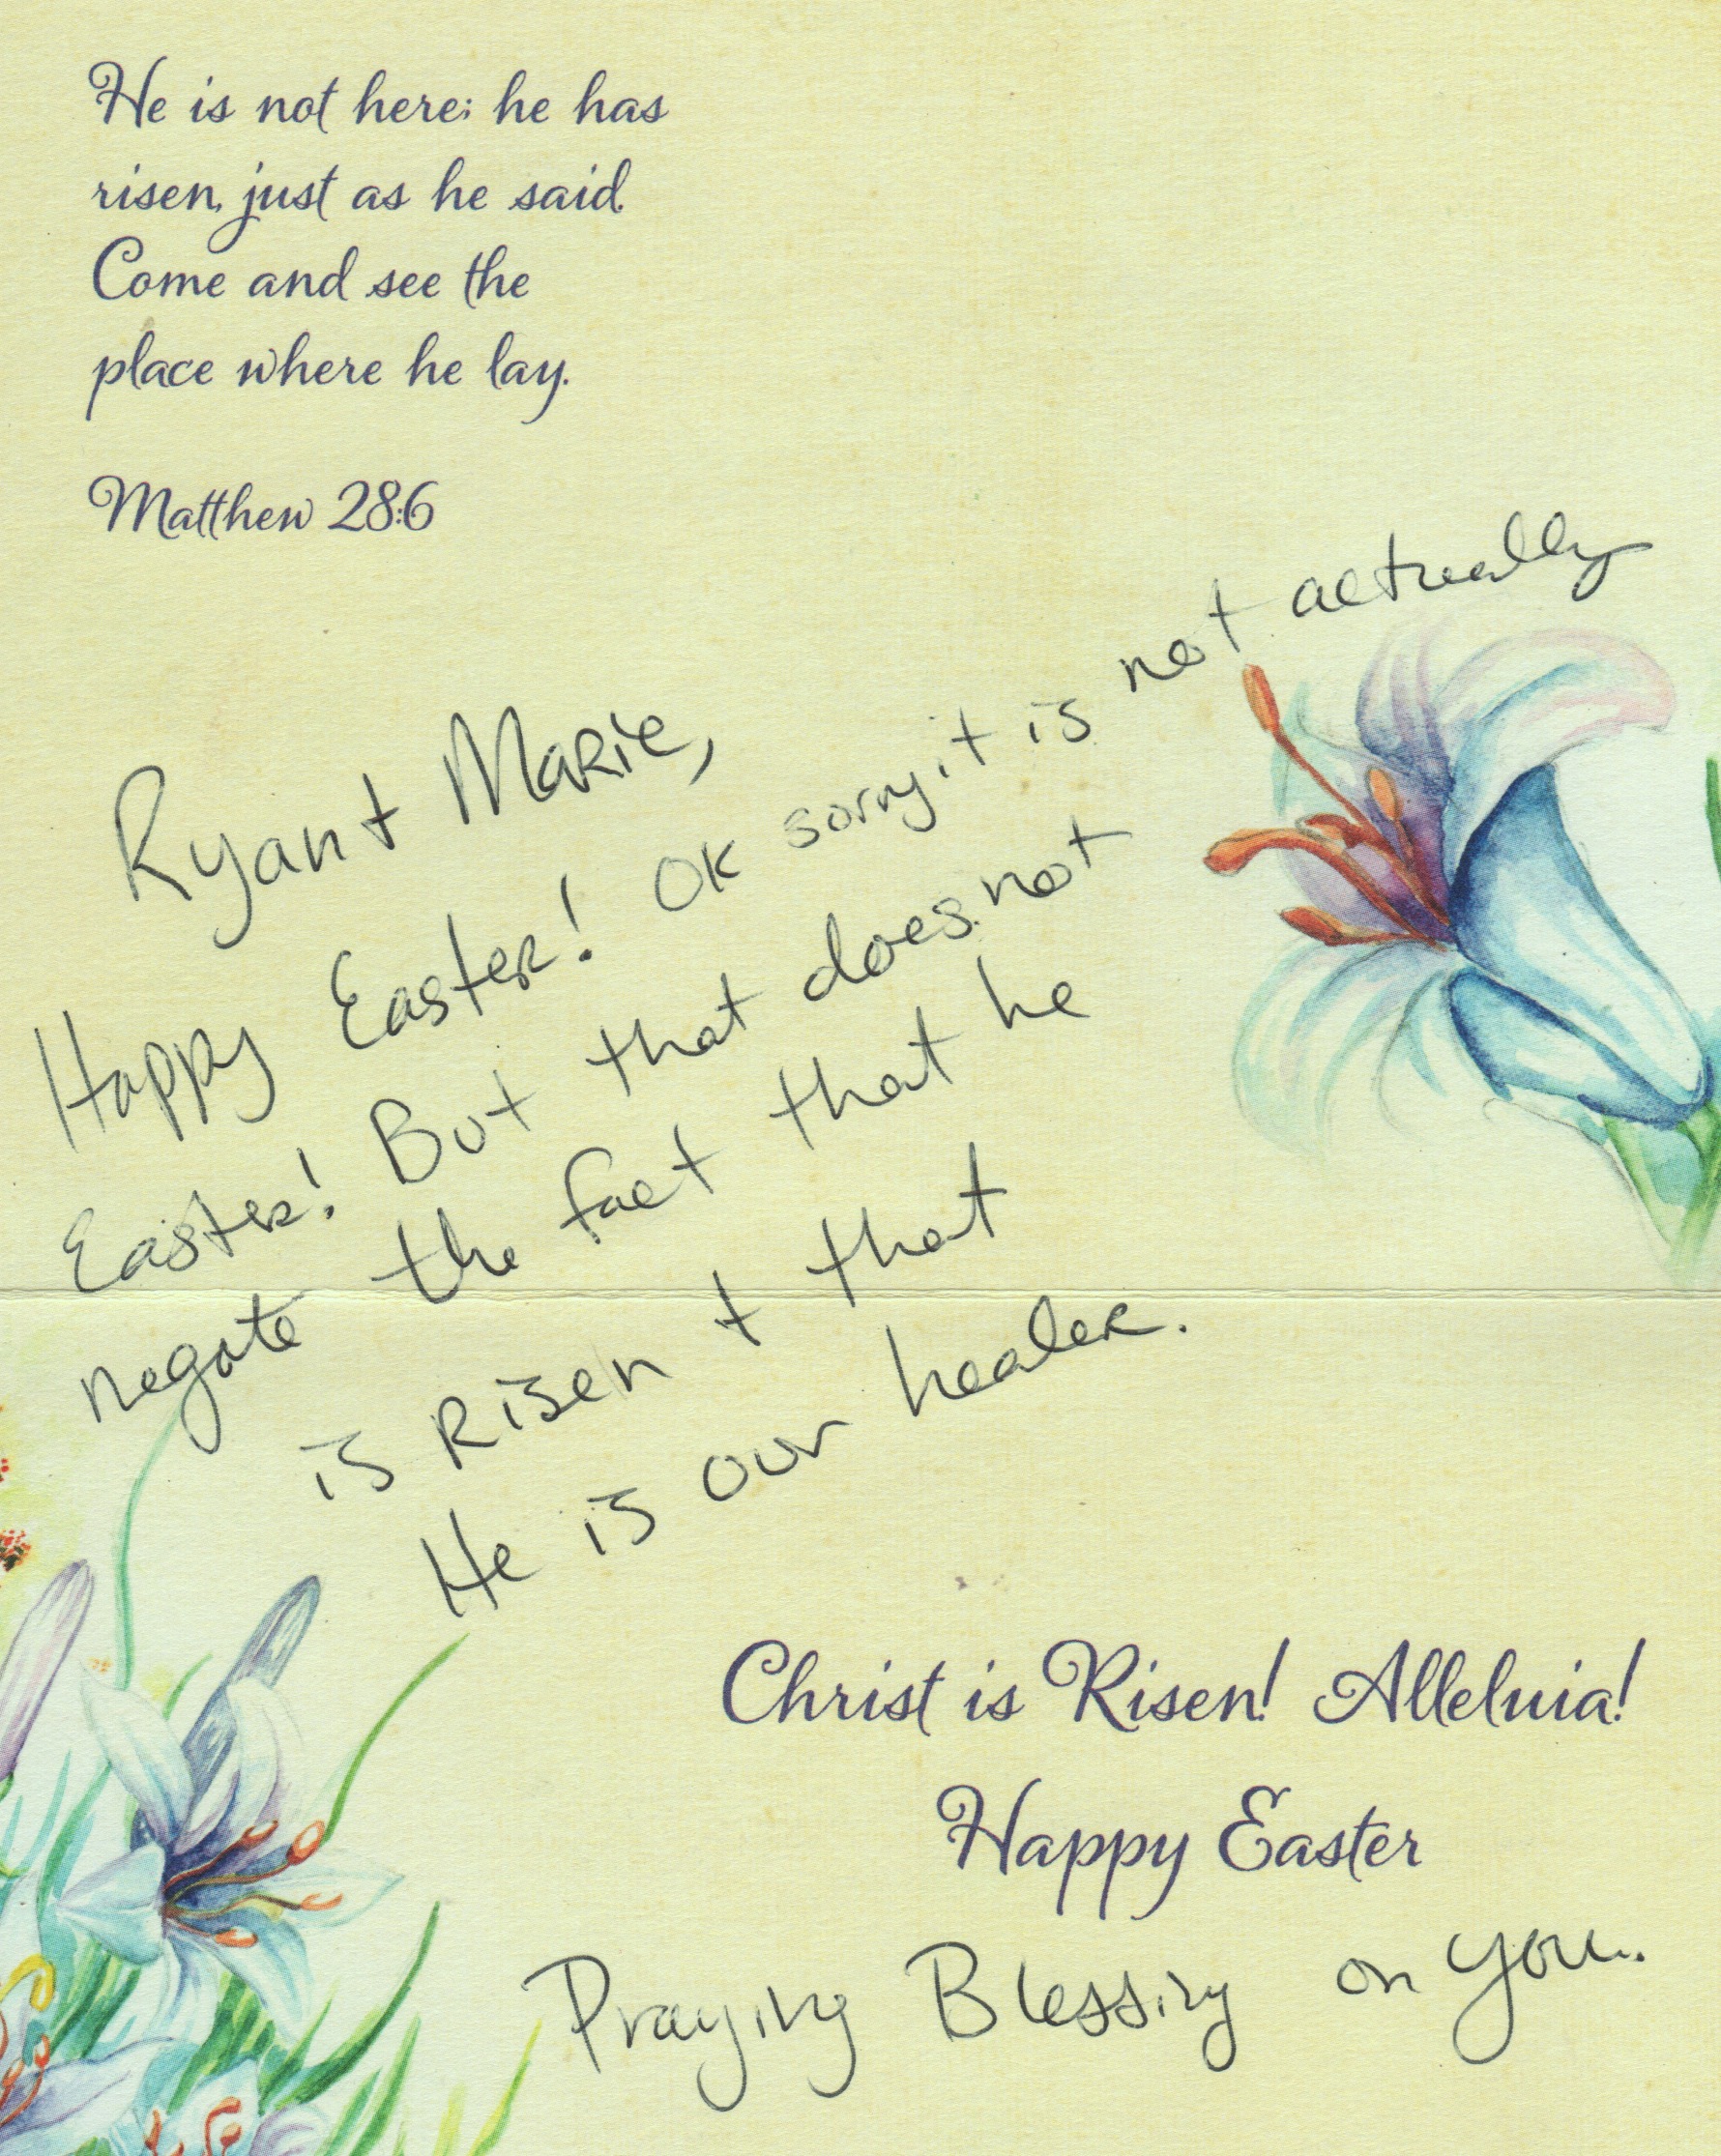 He is not here; he has
risen, just as he said.
Come and see the
place where he lay.
Matthew 28:6
Ryan + Marie,
Happy Easter! OK sorry, it is not actually
Easter! But that does not
negate the fact that he
is Risen + that
He is our healer.
Christ is Risen! Alleluia!
Happy Easter
Praying Blessing on you.